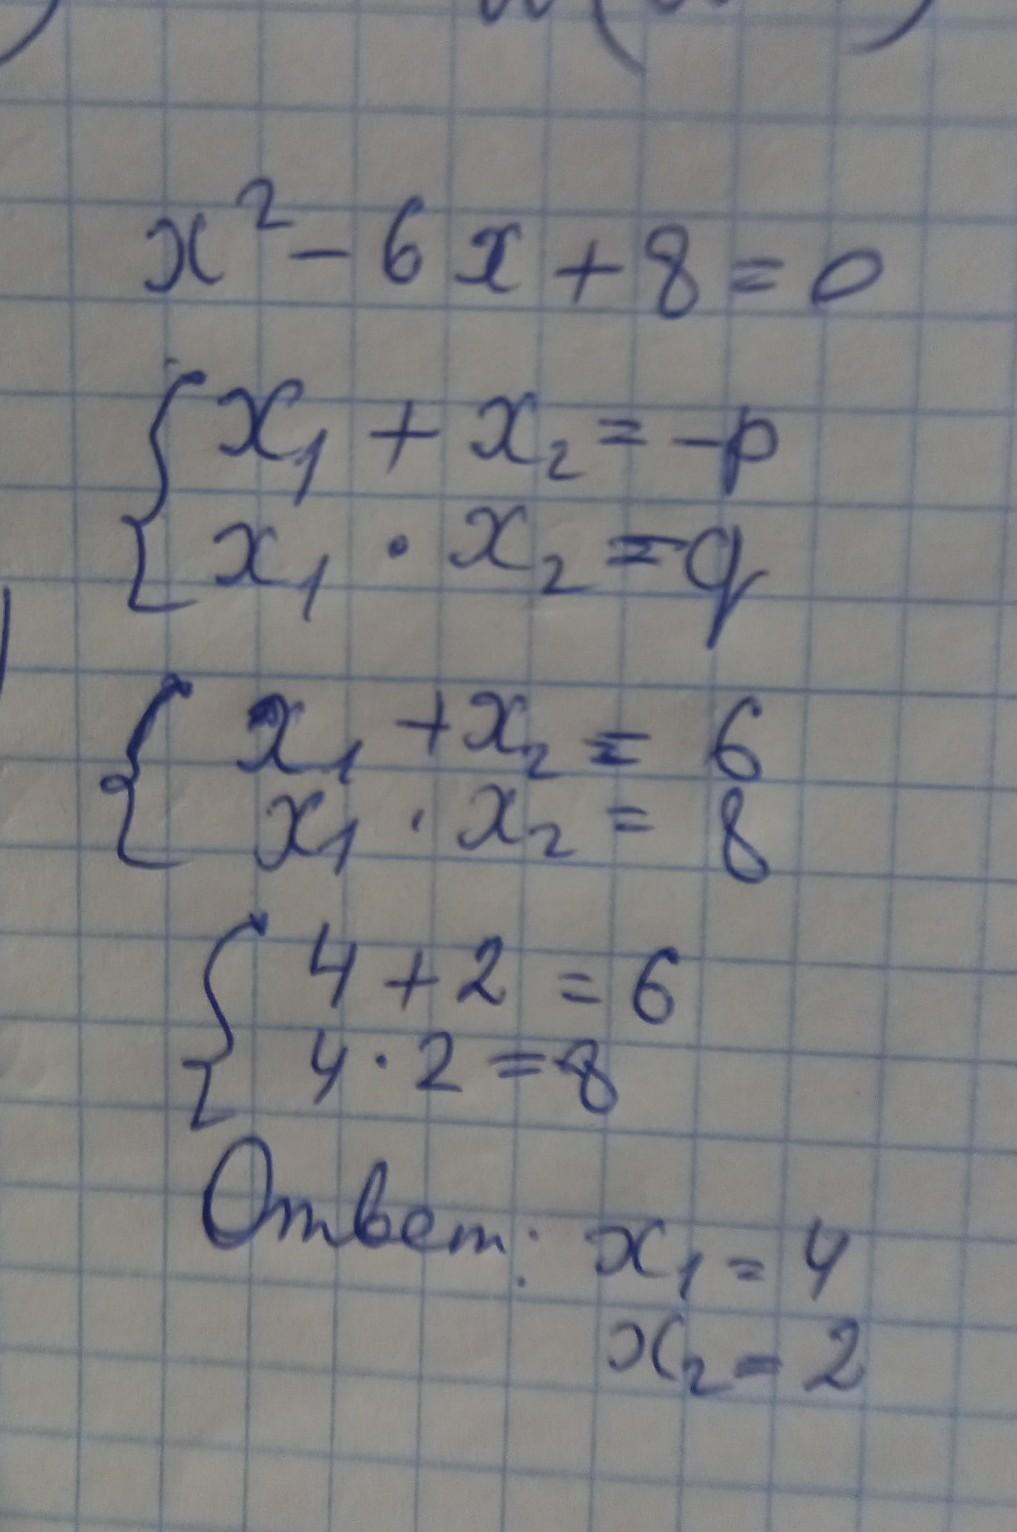 x² - 6x + 8 = 0
x₁ + x₂ = -p
x₁ · x₂ = q
x₁ + x₂ = 6
x₁ · x₂ = 8
4 + 2 = 6
4 · 2 = 8
Ответ: x₁ = 4
x₂ = 2